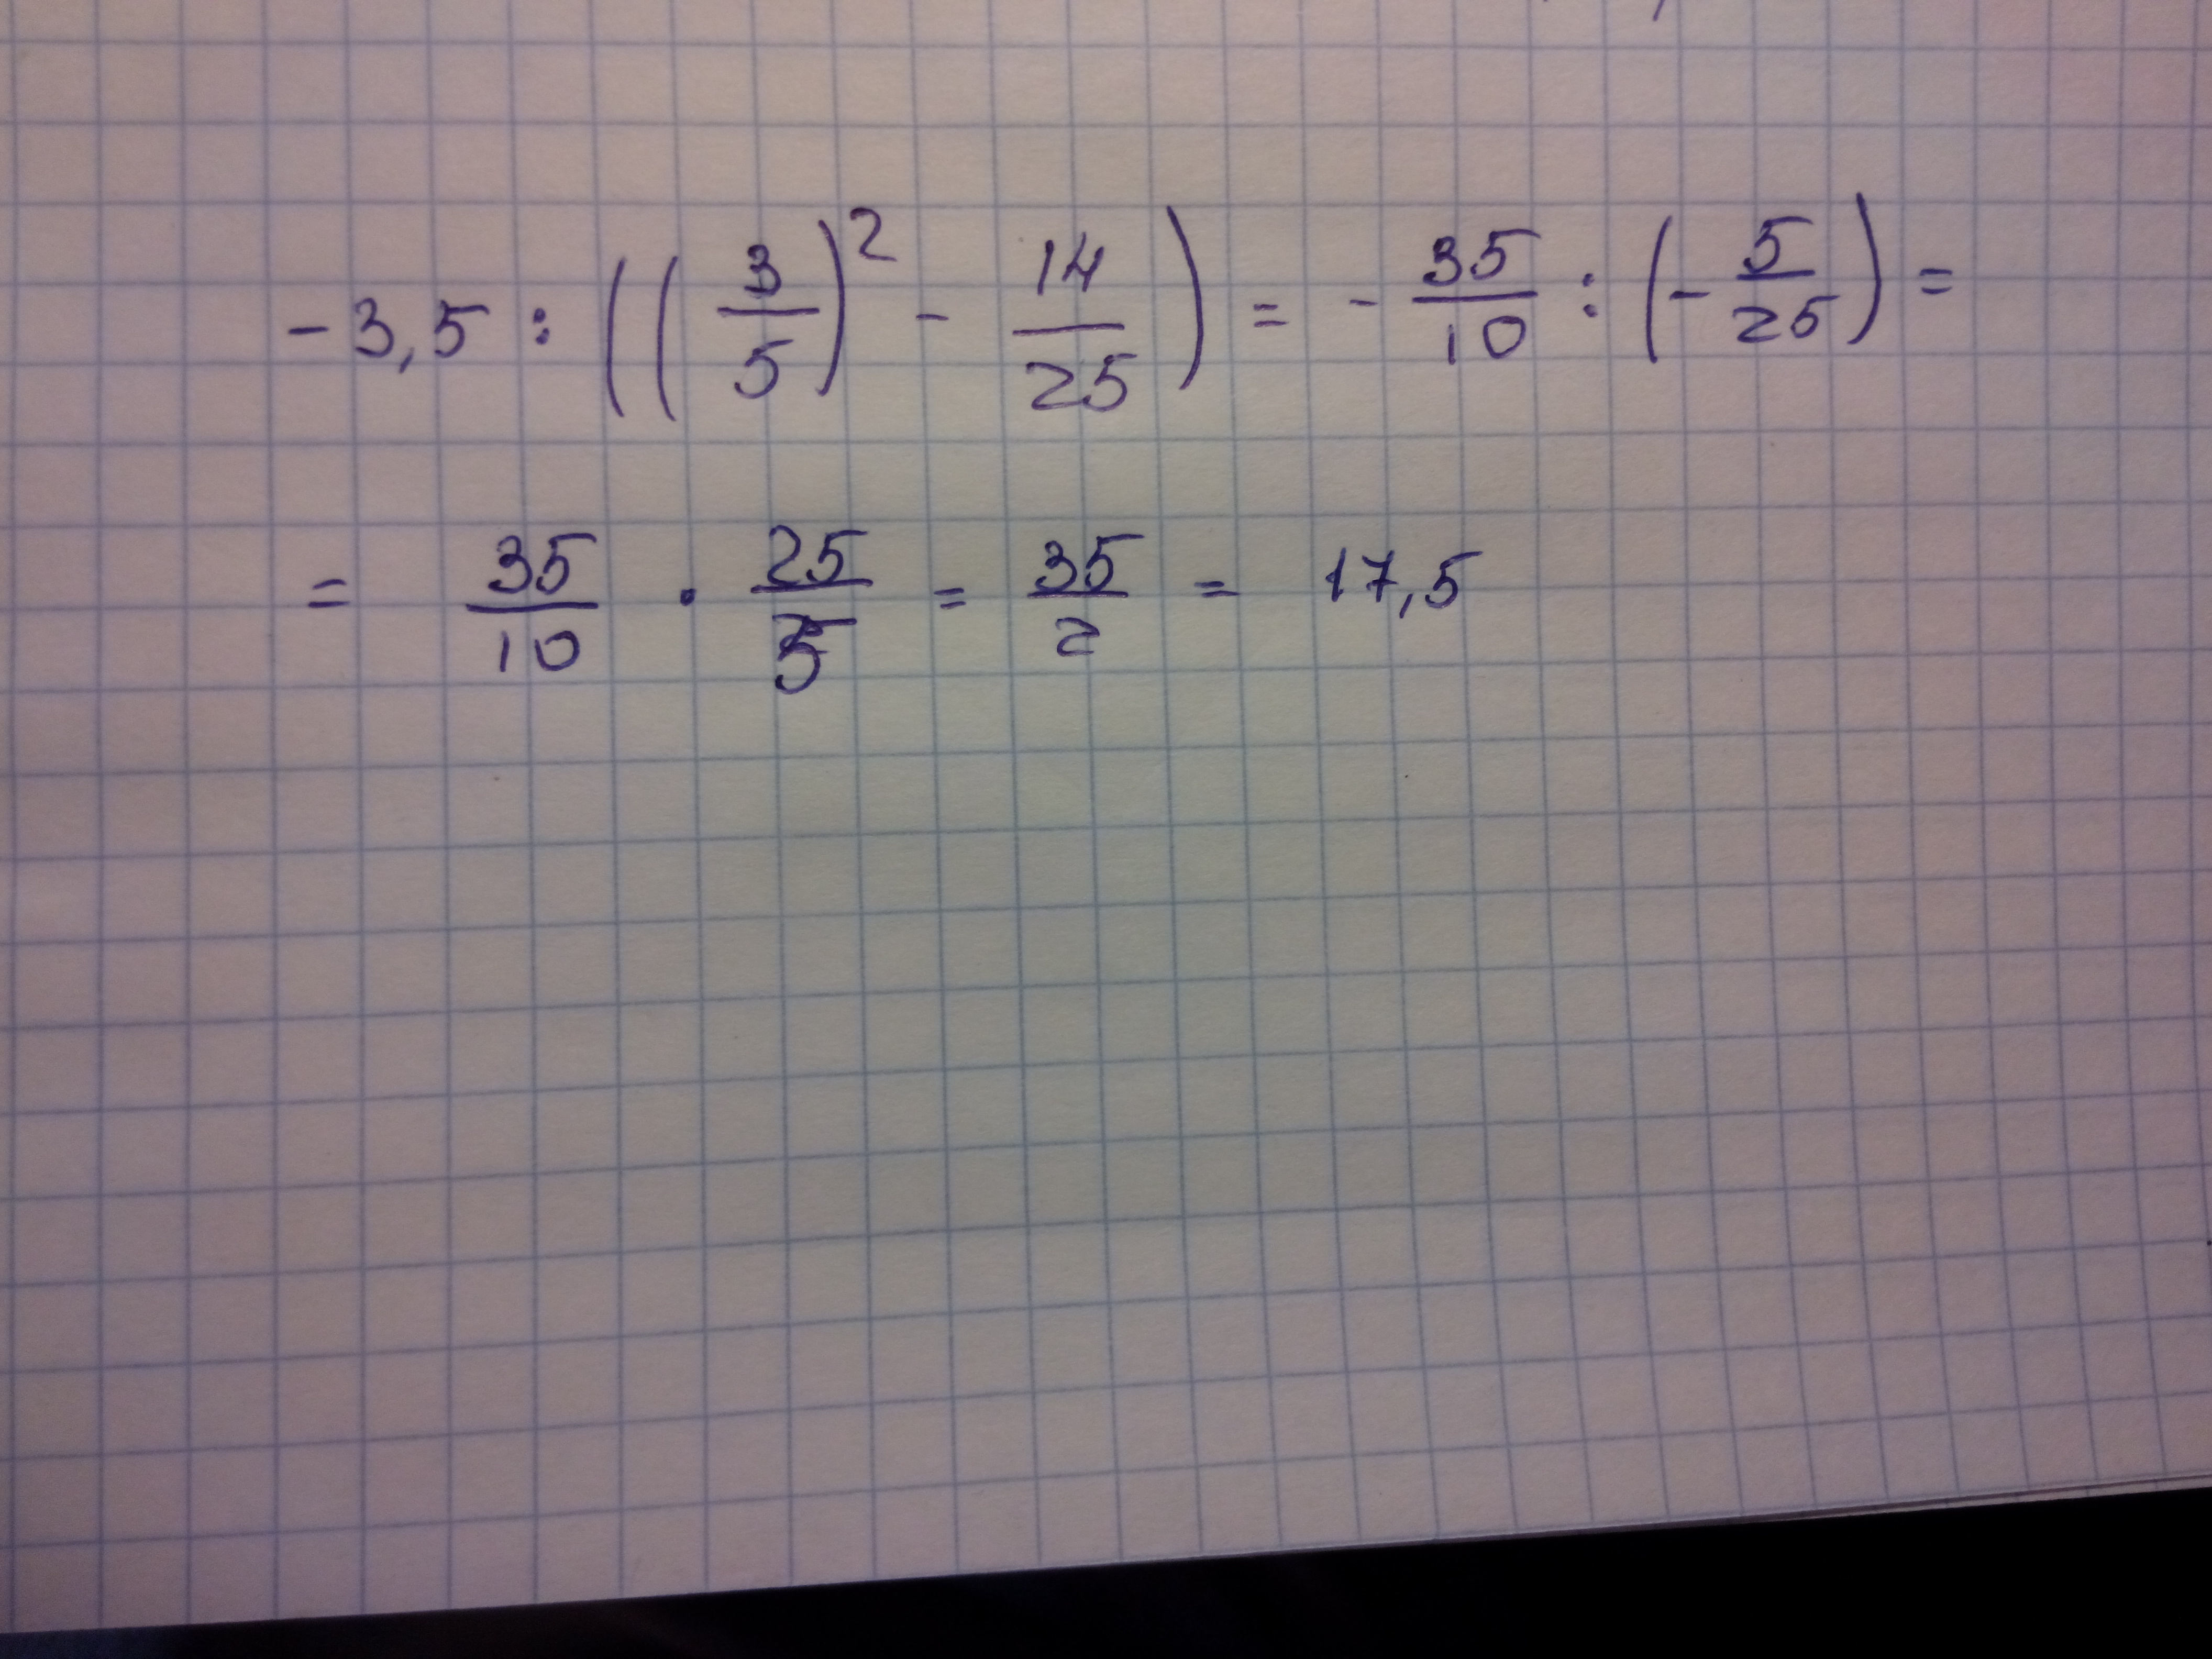 -3,5 : ((3/5)² - 14/25) = -35/10 : (-5/25) =
= 35/10 · 25/5 = 35/2 = 17,5